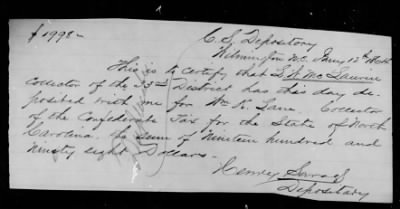 $1998–
C. S. Depository
Wilmington N.C. Jany 12th 1864
This is to certify that L. W. McLaurin
collector of the 33rd District has this day de-
posited with me for Wm K. Lane Collector
of the Confederate Tax for the State of North
Carolina, the sum of Nineteen hundred and
Ninety eight Dollars.
Henry Savage
Depositary